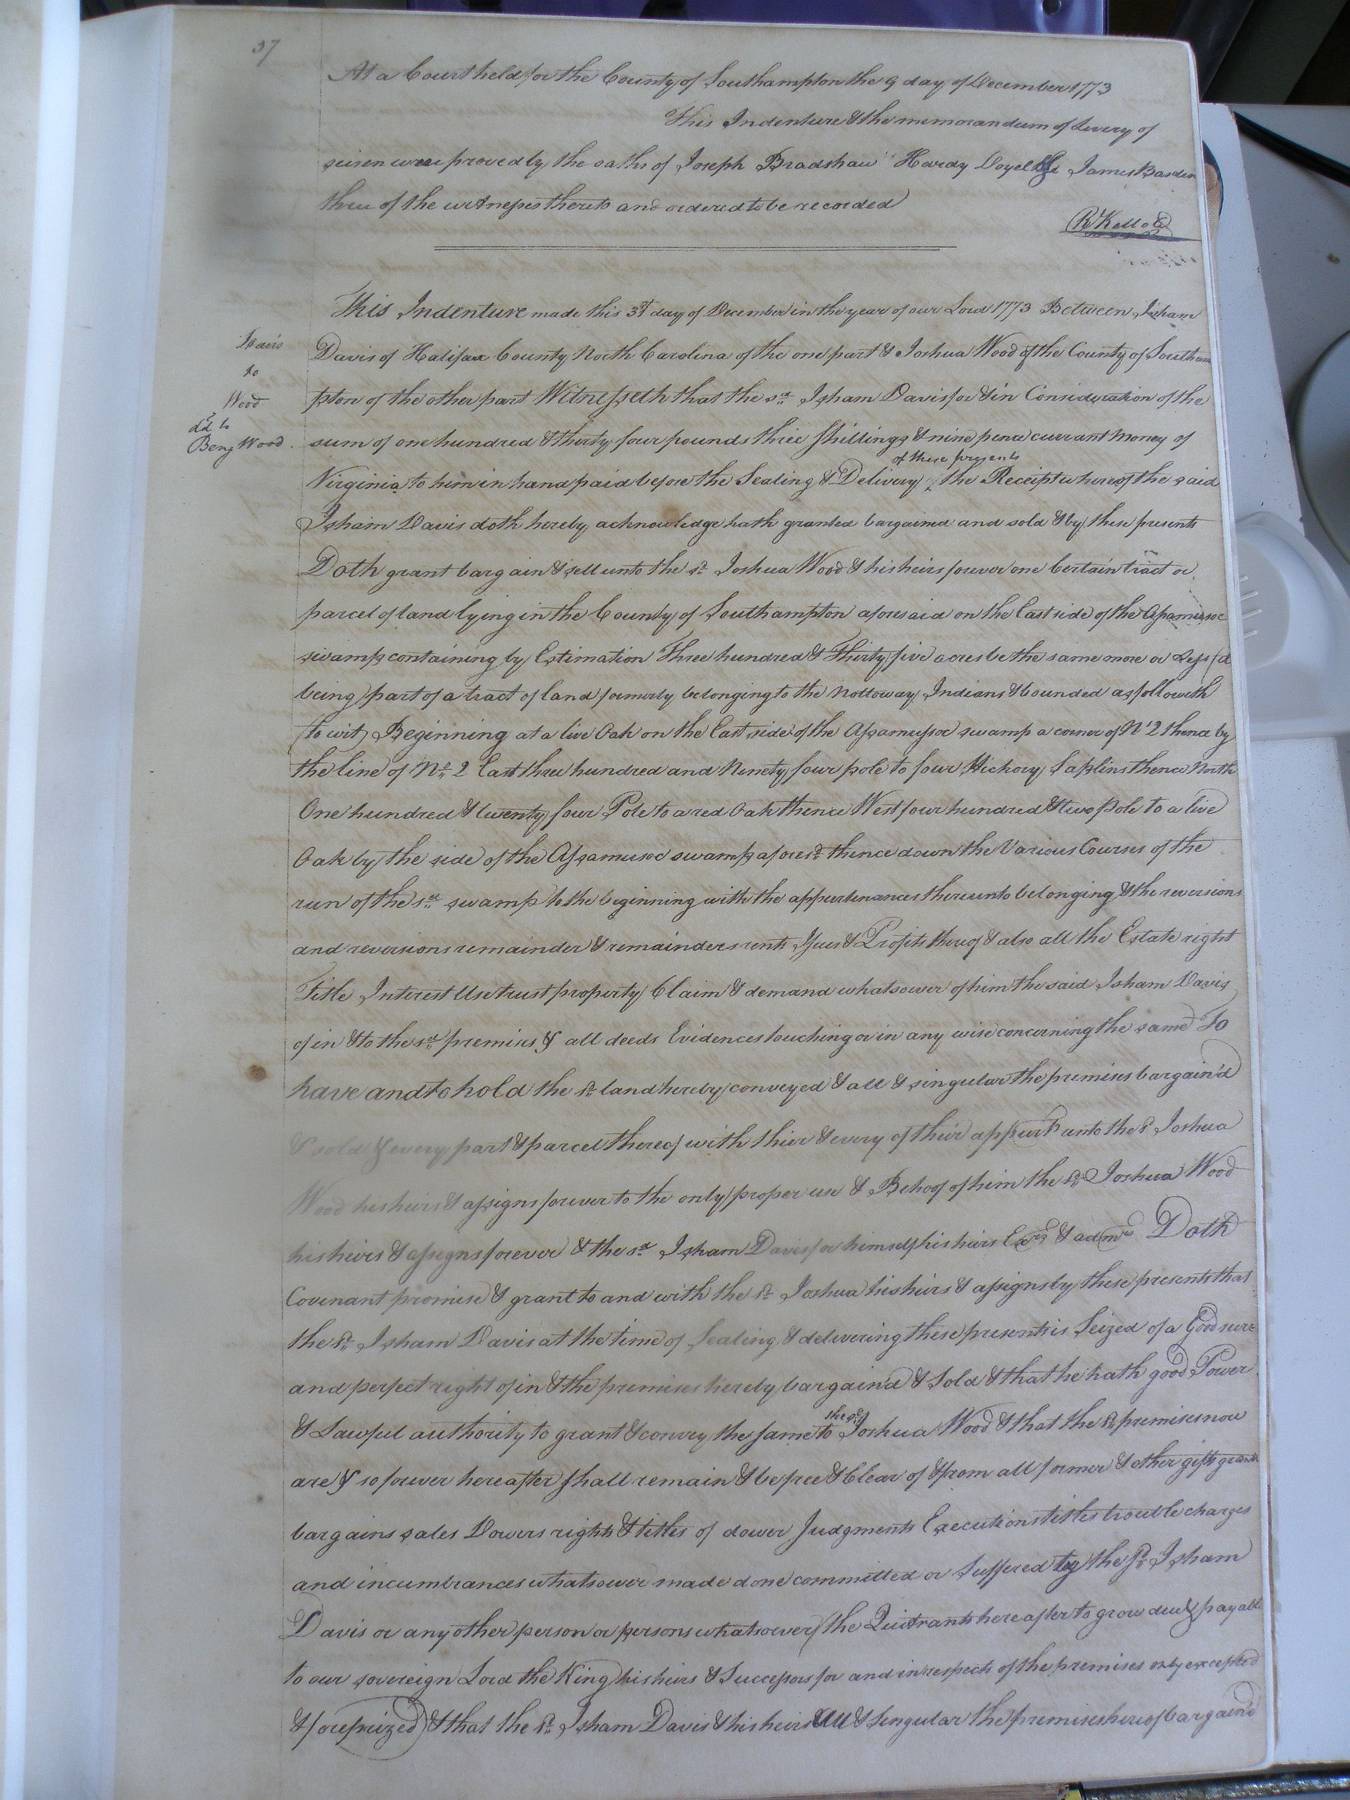 37
At a Court held for the County of Southampton the 9 day of December 1773
This Indenture & the memorandum of Livery of
seisen were proved by the oaths of Joseph Bradshaw Hardy Doyel & James Barden
three of the witnesses thereto and ordered to be recorded
R Kello
This Indenture made this 3d day of December in the year of our Lord 1773 Between Isham
Davis
to
Wood
dd to
Benj Wood
Davis of Halifax County North Carolina of the one part & Joshua Wood of the County of Southam
pton of the other part Witnesseth that the sd Isham Davis for & in Consideration of the
sum of one hundred & thirty four pounds three shillings & nine pence currant money of
Virginia to him in hand paid before the Sealing & Delivery of these presents the Receipt whereof the said
Isham Davis doth hereby acknowledge hath granted bargained and sold & by these presents
Doth grant bargain & sell unto the sd Joshua Wood & his heirs forever one Certain tract or
parcel of land lying in the County of Southampton aforesaid on the East side of the Assamusoc
swamp containing by Estimation Three hundred & Thirty five acres be the same more or Less it
being part of a tract of land formerly belonging to the Nottoway Indians & bounded as followeth
(to wit) Beginning at a live Oak on the East side of the Assamusoc swamp a corner of No 2 thence by
the line of No 2 East three hundred and Ninety four pole to four Hickory Saplins thence North
One hundred & twenty four Pole to a red Oak thence West four hundred & two pole to a live
Oak by the side of the Assamusoc swamp aforesd thence down the Various Courses of the
run of the sd swamp to the beginning with the appurtenances thereunto belonging & the reversions
and reversions remainder & remainders rents Issues & Profits thereof & also all the Estate right
Title Interest Use trust property Claim & demand whatsoever of him the said Isham Davis
of in & to the sd premises & all deeds Evidences touching or in any wise concerning the same To
have and to hold the sd land hereby conveyed & all & singular the premises bargain'd
& sold & every part & parcel thereof with their & every of their appurts unto the sd Joshua
Wood his heirs & assigns forever to the only proper use & Behoof of him the sd Joshua Wood
his heirs & assigns forever & the sd Isham Davis for himself his heirs Exrs & admrs Doth
Covenant promise & grant to and with the sd Joshua his heirs & assigns by these presents that
the sd Isham Davis at the time of Sealing & delivering these presents is Seized of a Good sure
and perfect right of in & the premises hereby bargain'd & Sold & that he hath good Power
& Lawful authority to grant & convey the same to the sd Joshua Wood & that the sd premises now
are & so forever hereafter shall remain & be free & Clear of & from all former & other gifts grants
bargains sales Dowers rights & titles of dower Judgments Executions titles trouble charges
and incumbrances whatsoever made done committed or Suffered by the sd Isham
Davis or any other person or persons whatsoever (the Quitrants hereafter to grow due & payable
to our sovereign Lord the King his heirs & Successors for and in respects of the premises only excepted
& foreprized) & that the sd Isham Davis & his heirs All & Singular the premises hereof bargain'd